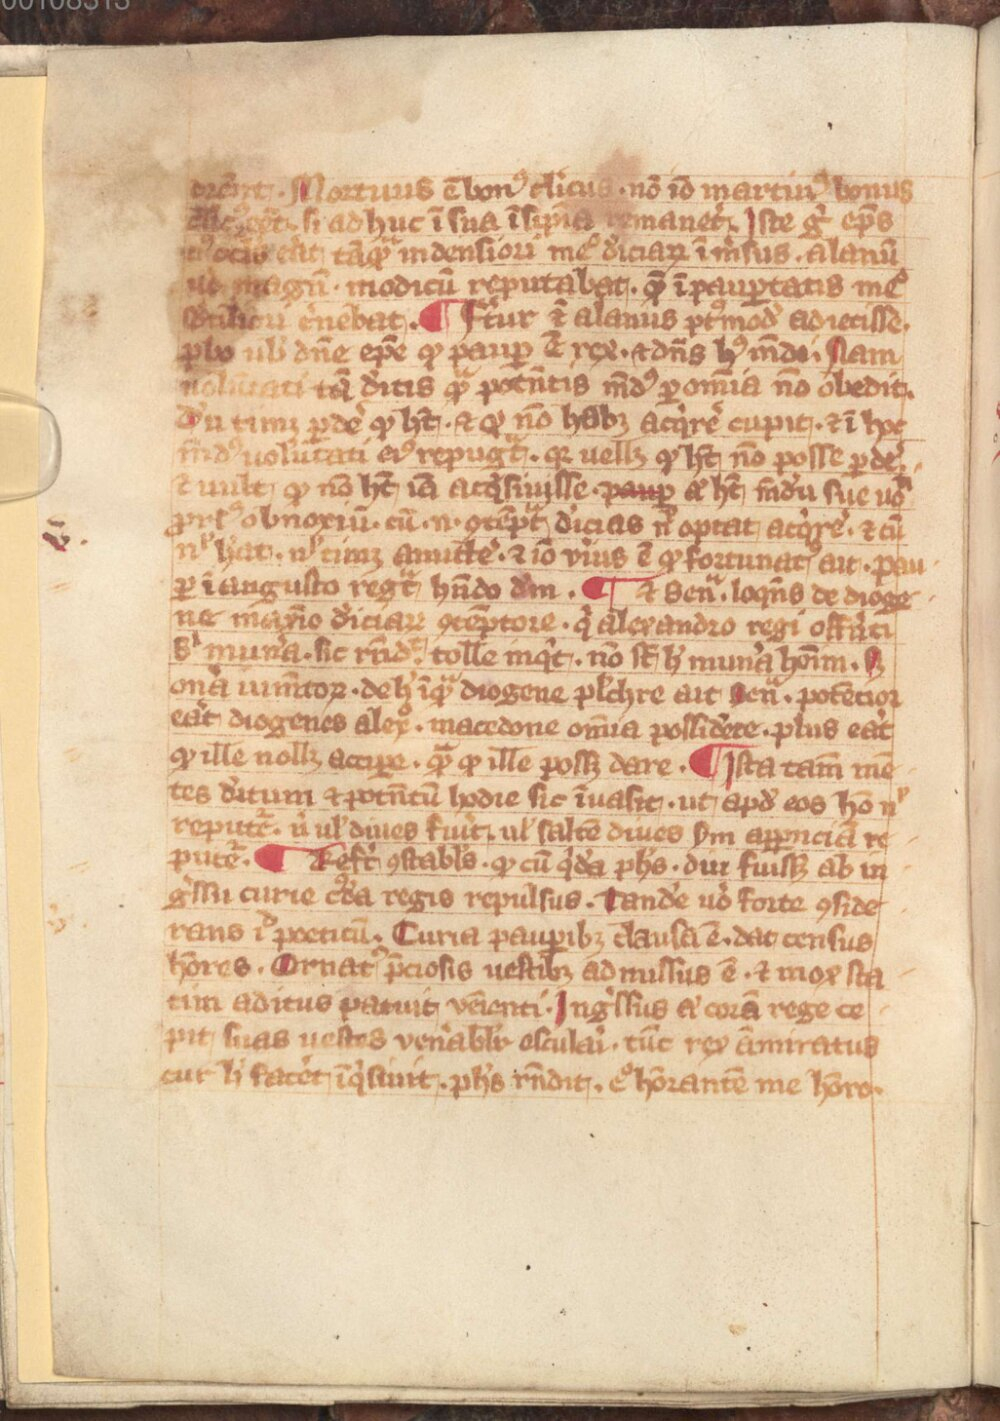 00108313
Mortuus ē bon⁹ cl'icus . nō iō martin⁹ bonus
si ad huc ī sua īsip̄ia remanet . Iste g° ep̄s
tāq̃ in densiori me° diciaꝝ īmsus . alanū
magn̄ . modicū reputabat . q̄ ī paup̄tatis me°
c̓nebat . ¶ Fc̃ur ē alanus pt⁹mod' adiecisse .
ubʼ dn̄e ep̄e qͥ paup̲ ē rex . ⁊ dn̄s hꝰ mūdi . Nam
uolūtati dc̄itis q͛ potn̄tis mūd⁹ p̲ omīa nō obedit .
timꝫ p̲dēʼ qͩ ht̄ . ⁊ qͩ nō habꝫ acqͥrē cupit . ⁊ ī hoc
mūd⁹ uolūtati ei⁹ repugᵃt . qꝛ uellꝫ qͩ ht̄ nō posse p̲dēʼ .
⁊ uult qͩ nō ht̄ iā acqͥsiuisse . paup̲ aͧ ht̄ mūdū sue uoˡⁱ
obnoxiū . cū . n . ꝯtēpᵗ diciās nͨ optat acqͥrē . ⁊ cū
nͪ hēat . nͪ timꝫ amittēʼ . ⁊ iō vīus ē qͩ fortunat⁹ ait . pau
p̲ ī angusto regᵗ hn̄do dm̄ . ¶ ⁊ Senᵃ . loqn̄s de dioge
ne maxīo diciaꝝ ꝯtēptore . qͥ alexandro regi offēti
sͥ mun̄a . sic rn̄d⁹ . tolle inqͥt . nō st̄ hͨ mun̄a hoīm . Sꝫ
onʼa uim̄toꝝ . de hͨ īqᵃ diogene pl'chre ait Senᵃ . potētior
eāt diogenes alex° . macedone omīa possidēte . plus eāt
qͩ ille nollꝫ accip̲e . q̃ qͩ ille possꝫ dare . ¶ Ista tam mē
tes dītum ⁊ potn̄tū hodie sic īuasit . ut apd' eos hō nͪ
reputēᵗ . nͥ ul' diues fuīt . ul' saltē diues s'm app̲nciā re
putēᵗ . ¶ Refᵗ ꝯstabl's . qͩ cū qͥdā ph's . diu fuissꝫ ab in
g͛ssu curie cͥdā regis repulsus . Tandē u° forte ꝯside
rans iᵈ poeticū . Curia paup̲ibꝫ clausa ē . dat census
hōres . Ornat⁹ p̄ciosis uestibꝫ admissus ē . ⁊ mox sta
tim aditus patuit vēienti . Ing͛ssus aͧ corā rege ce
pit suas uestes ven̄abl'r osculaīʼ . tūc rex āmiratus
cur hͨ facēt īqͥsiuit . ph's rn̄dit . e° hōrantē me hōro .